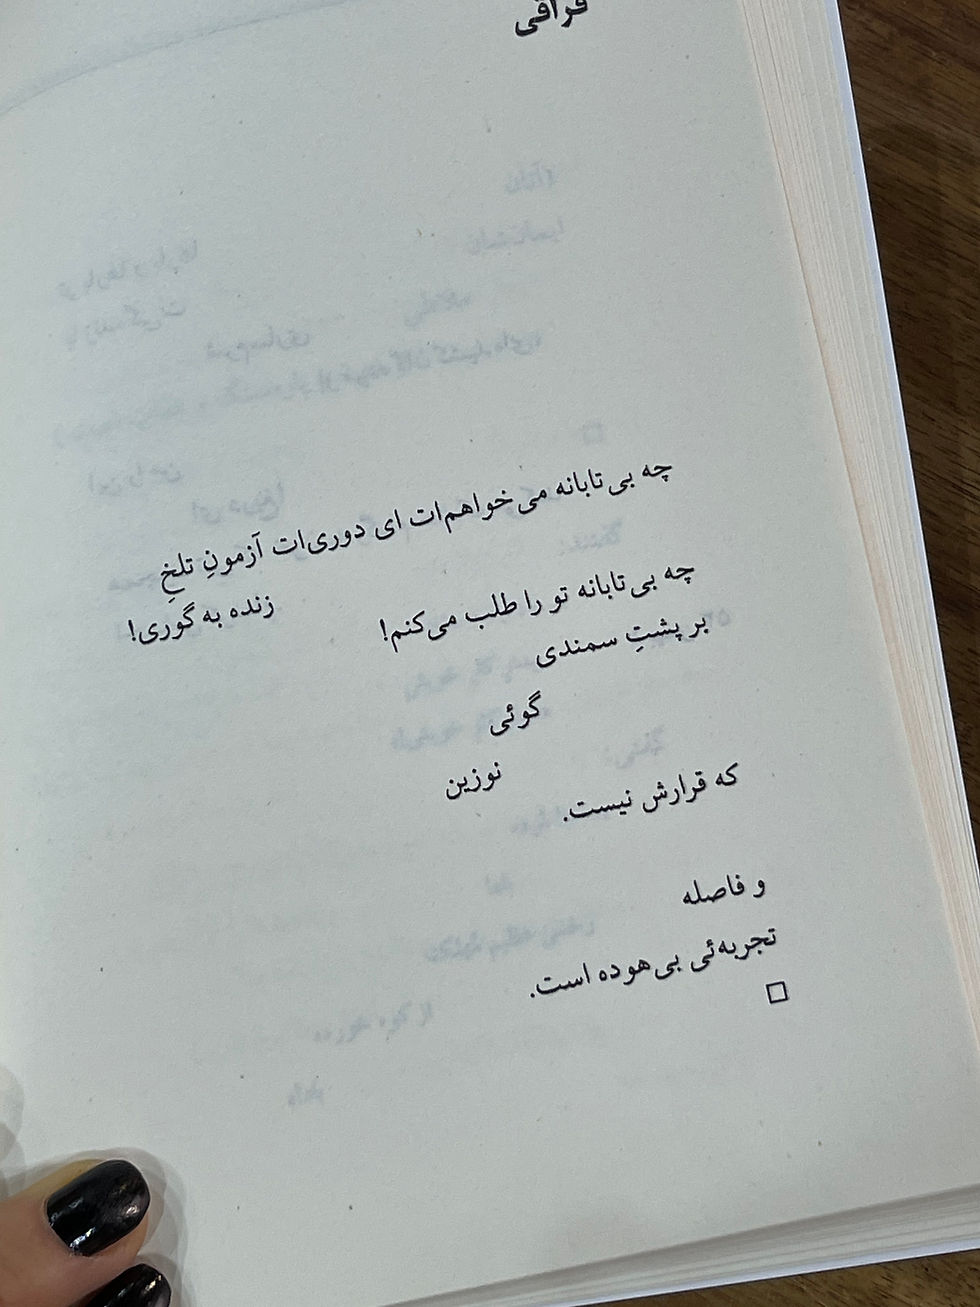 فراقی
چه بی‌تابانه می‌خواهم‌ات ای دوری‌ات آزمونِ تلخِ
زنده به گوری!
چه بی‌تابانه تو را طلب می‌کنم!
بر پشتِ سمندی
گوئی
نوزین
که قرارش نیست.
و فاصله
تجربه‌ئی بی‌هوده است.
□